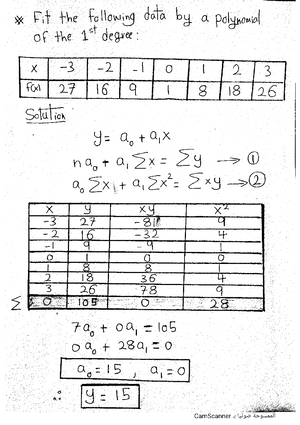 * Fit the following data by a polynomial
of the 1st degree:
x -3 -2 -1 0 1 2 3
f(x) 27 16 9 1 8 18 26
Solution
y = a₀ + a₁x
n a₀ + a₁ Σx = Σy → ①
a₀ Σx + a₁ Σx² = Σxy → ②
x y xy x²
-3 27 -81 9
-2 16 -32 4
-1 9 -9 1
0 1 0 0
1 8 8 1
2 18 36 4
3 26 78 9
Σ 0 105 0 28
7a₀ + 0a₁ = 105
0a₀ + 28a₁ = 0
a₀ = 15 , a₁ = 0
∴ y = 15
الممسوحة ضوئيا بـ CamScanner